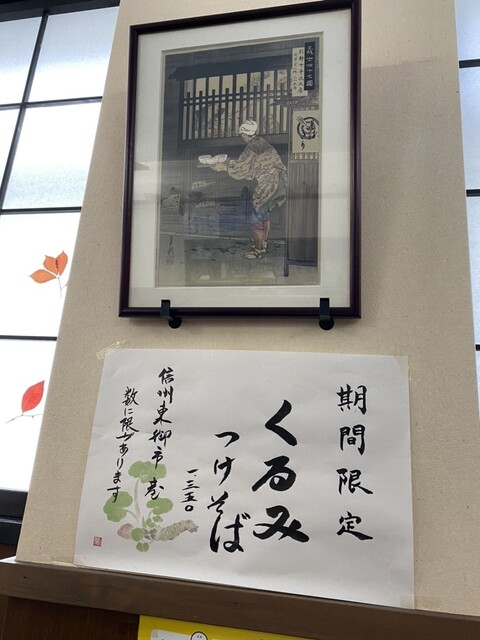 期間限定
くるみ
つけそば
一三五〇
信州東御市産
数に限があります